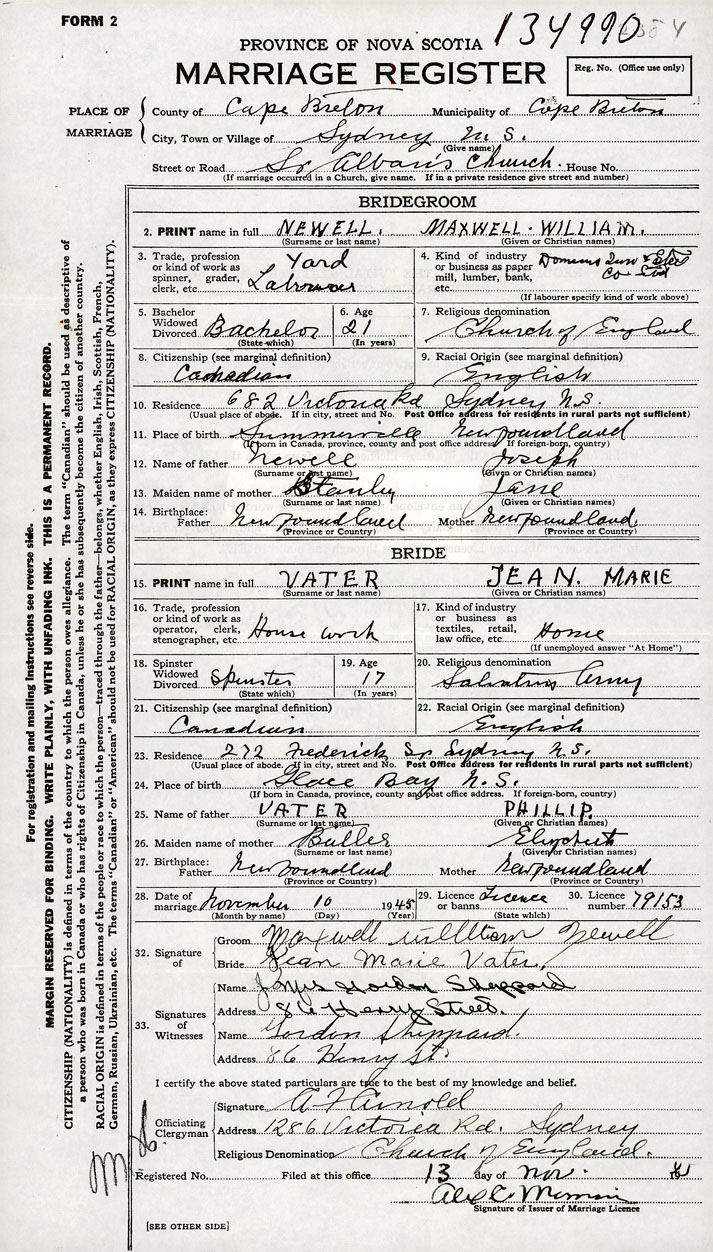 FORM 2
134990
PROVINCE OF NOVA SCOTIA
MARRIAGE REGISTER
Reg. No. (Office use only)
PLACE OF MARRIAGE
County of Cape Breton Municipality of Cape Breton
City, Town or Village of Sydney N. S.
(Give name)
Street or Road St Alban's Church. House No.
(If marriage occurred in a Church, give name. If in a private residence give street and number)
BRIDEGROOM
2. PRINT name in full NEWELL. MAXWELL. WILLIAM.
(Surname or last name) (Given or Christian names)
3. Trade, profession or kind of work as spinner, grader, clerk, etc. Yard Labourer
4. Kind of industry or business as paper mill, lumber, bank, etc. Co Ltd
(If labourer specify kind of work above)
5. Bachelor Widowed Divorced Bachelor
(State which)
6. Age 21
(In years)
7. Religious denomination Church of England
8. Citizenship (see marginal definition) Canadian
9. Racial Origin (see marginal definition) English
10. Residence 682 Victoria Rd Sydney N.S.
(Usual place of abode. If in city, street and No. Post Office address for residents in rural parts not sufficient)
11. Place of birth Summerville Newfoundland
(If born in Canada, province, county and post office address. If foreign-born, country)
12. Name of father Newell Joseph
(Surname or last name) (Given or Christian names)
13. Maiden name of mother Stanley Jane
(Surname or last name) (Given or Christian names)
14. Birthplace: Father Newfoundland Mother Newfoundland.
(Province or Country) (Province or Country)
BRIDE
15. PRINT name in full VATER JEAN. MARIE
(Surname or last name) (Given or Christian names)
16. Trade, profession or kind of work as operator, clerk, stenographer, etc. House work
17. Kind of industry or business as textiles, retail, law office, etc. Home
(If unemployed answer "At Home")
18. Spinster Widowed Divorced Spinster
(State which)
19. Age 17
(In years)
20. Religious denomination Salvation Army
21. Citizenship (see marginal definition) Canadian
22. Racial Origin (see marginal definition) English
23. Residence 272 Frederick St Sydney N.S.
(Usual place of abode. If in city, street and No. Post Office address for residents in rural parts not sufficient)
24. Place of birth Glace Bay N.S.
(If born in Canada, province, county and post office address. If foreign-born, country)
25. Name of father VATER PHILLIP.
(Surname or last name) (Given or Christian names)
26. Maiden name of mother Butler Elizabeth
(Surname or last name) (Given or Christian names)
27. Birthplace: Father Newfoundland Mother Newfoundland
(Province or Country) (Province or Country)
28. Date of marriage November 10 1945
(Month by name) (Day) (Year)
29. Licence or banns Licence
(State which)
30. Licence number 79153
32. Signature of
Groom Maxwell William Newell
Bride Jean Marie Vater.
33. Signatures of Witnesses
Name Mrs Gordon Sheppard
Address 86 Henry Street.
Name Gordon Sheppard.
Address 86 Henry St.
I certify the above stated particulars are true to the best of my knowledge and belief.
Officiating Clergyman
Signature A F Arnold
Address 1286 Victoria Rd. Sydney
Religious Denomination Church of England.
Registered No. Filed at this office 13 day of Nov.
Signature of Issuer of Marriage Licence
[SEE OTHER SIDE]
For registration and mailing instructions see reverse side.
MARGIN RESERVED FOR BINDING. WRITE PLAINLY, WITH UNFADING INK. THIS IS A PERMANENT RECORD.
CITIZENSHIP (NATIONALITY) is defined in terms of the country to which the person owes allegiance. The term "Canadian" should be used as descriptive of
a person who was born in Canada or who has rights of Citizenship in Canada, unless he or she has subsequently become the citizen of another country.
RACIAL ORIGIN is defined in terms of the people or race to which the person—traced through the father—belongs, whether English, Irish, Scottish, French,
German, Russian, Ukrainian, etc. The terms "Canadian" or "American" should not be used for RACIAL ORIGIN, as they express CITIZENSHIP (NATIONALITY).